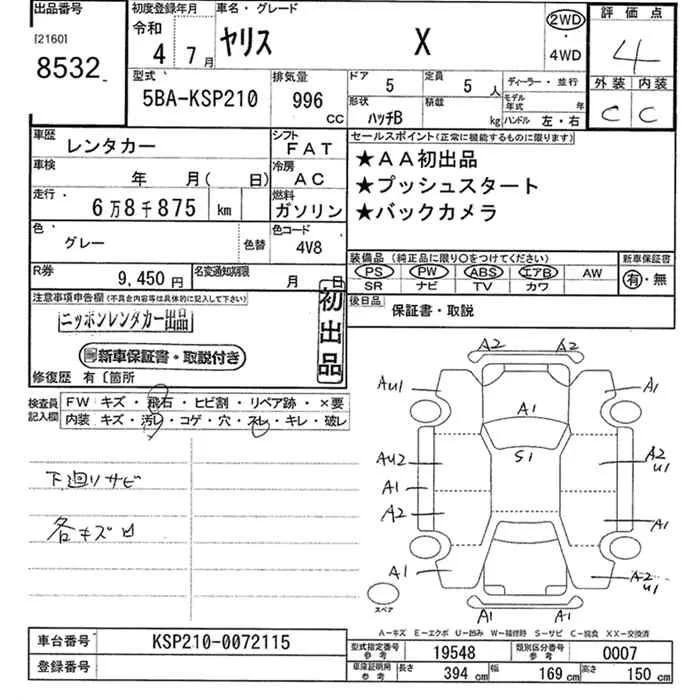 出品番号
[2160]
8532
初度登録年月
令和
4 7月
車名・グレード
ヤリス X
2WD
・
4WD
評価点
4
外装 内装
C C
型式
5BA-KSP210
排気量
996
CC
ドア
5
定員
5人
ディーラー・並行
形状
ハッチB
積載
kg
モデル年式 年
ハンドル 左・右
車歴
レンタカー
シフト
FAT
車検
年 月( 日)
冷房
AC
走行・
6万8千875 km
燃料
ガソリン
色・
グレー
色替
色コード
4V8
R券
9,450円
名変通知期限
月 日
セールスポイント(正常に機能するものに限ります)
★AA初出品
★プッシュスタート
★バックカメラ
装備品(純正品に限り○をつけてください)
PS PW ABS エアB AW
SR ナビ TV カワ
新車保証書
有・無
後日品
保証書・取説
注意事項申告欄(不具合内容等は具体的に記入して下さい)
ニッポンレンタカー出品
新車保証書・取説付き
初出品
修復歴 有〔箇所
検査員記入欄
FW キズ・飛石・ヒビ割・リペア跡・×要
内装 キズ・汚レ・コゲ・穴・スレ・キレ・破レ
下廻りサビ
各キズ凹
A2 A2
AU1 A1
A1
S1
AU2 A2
U1
A1
A2 A1
A1 A2
U1
A1 A1
スペア
A-キズ E-エクボ U-凹み W-補修跡 S-サビ C-腐食 XX-交換済
車台番号
KSP210-0072115
登録番号
型式指定番号
参考
19548
類別区分番号
参考
0007
車庫証明用
参考
長さ
394 cm
幅
169 cm
高さ
150 cm